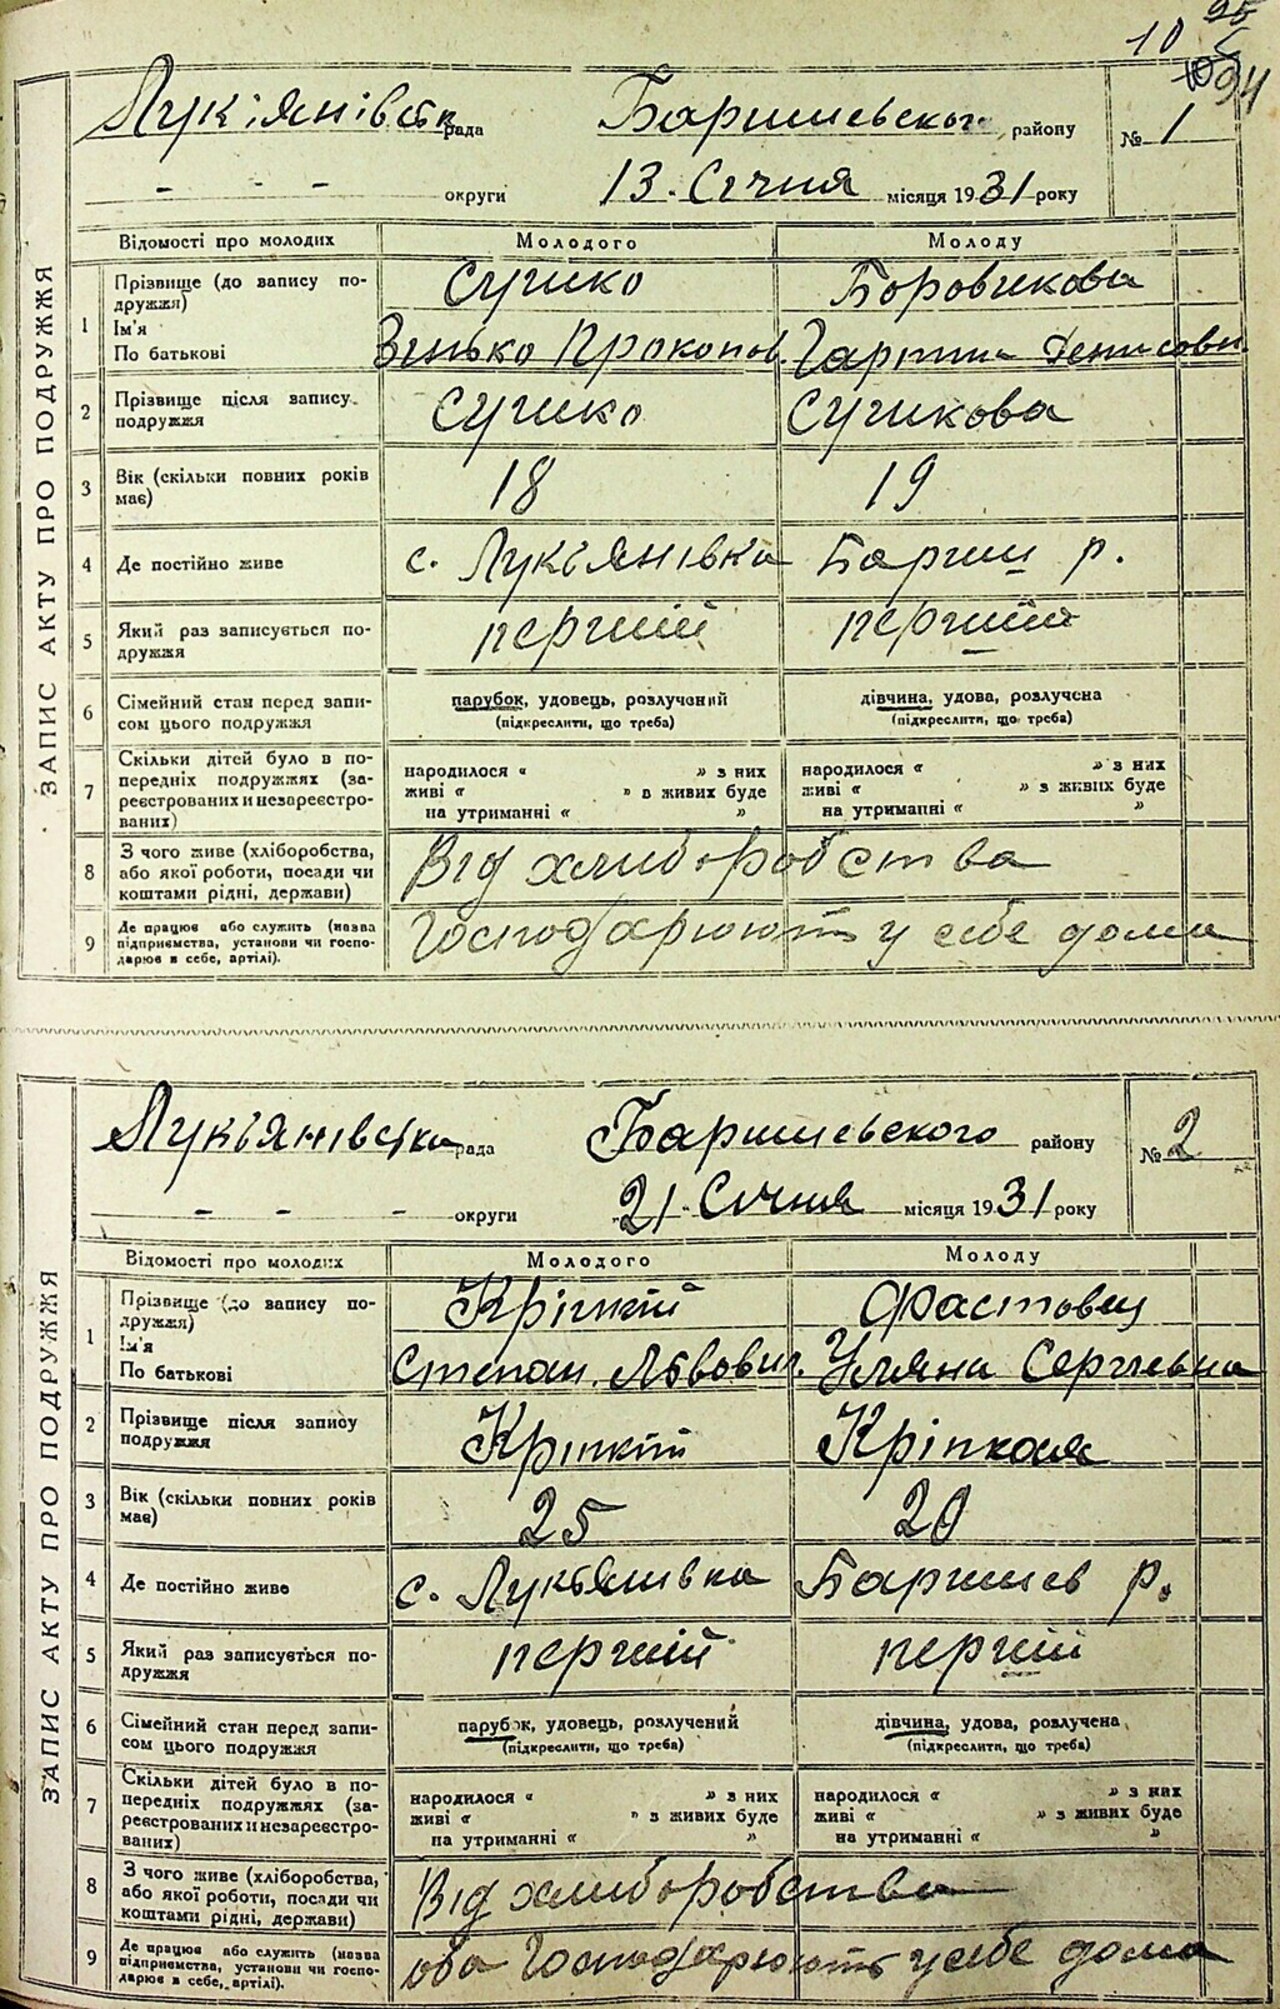 10
94
Лукіянівськ рада Баришевського району № 1
округи 13. Січня місяця 1931 року
ЗАПИС АКТУ ПРО ПОДРУЖЖЯ
Відомості про молодих Молодого Молоду
1 Прізвище (до запису по-
дружжя) Сушко Боровикова
Ім'я
По батькові Зінько Прокопов. Денисовн.
2 Прізвище після запису
подружжя Сушко Сушкова
3 Вік (скільки повних років
має) 18 19
4 Де постійно живе с. Лукьянівка Бариш р.
5 Який раз записується по-
дружжя перший перший
6 Сімейний стан перед запи-
сом цього подружжя парубок, удовець, розлучений дівчина, удова, розлучена
(підкреслити, що треба) (підкреслити, що треба)
7 Скільки дітей було в по-
передніх подружжях (за-
реєстрованих и незареєстро-
ваних)
народилося “ ” з них народилося “ ” з них
живі “ ” в живих буде живі “ ” з живих буде
на утриманні “ ” на утриманні “ ”
8 З чого живе (хліборобства,
або якої роботи, посади чи
коштами рідні, держави) Від хлиборобства
9 Де працює або служить (назва
підприємства, установи чи госпо-
дарює в себе, артілі). Господарюють у себе дома
Лукьянівська рада Баришевського району № 2
округи 21. Січня місяця 1931 року
ЗАПИС АКТУ ПРО ПОДРУЖЖЯ
Відомості про молодих Молодого Молоду
1 Прізвище (до запису по-
дружжя) Кріпкій Фастовец
Ім'я
По батькові Степан Львович. Уляна Сергіевна
2 Прізвище після запису
подружжя Кріпкій Кріпкая
3 Вік (скільки повних років
має) 25 20
4 Де постійно живе с. Лукьянівка Баришев р.
5 Який раз записується по-
дружжя перший перший
6 Сімейний стан перед запи-
сом цього подружжя парубок, удовець, розлучений дівчина, удова, розлучена
(підкреслити, що треба) (підкреслити, що треба)
7 Скільки дітей було в по-
передніх подружжях (за-
реєстрованих и незареєстро-
ваних)
народилося “ ” з них народилося “ ” з них
живі “ ” з живих буде живі “ ” з живих буде
на утриманні “ ” на утриманні “ ”
8 З чого живе (хліборобства,
або якої роботи, посади чи
коштами рідні, держави) Від хлиборобства
9 Де працює або служить (назва
підприємства, установи чи госпо-
дарює в себе, артілі). оба Господарюють у себе дома